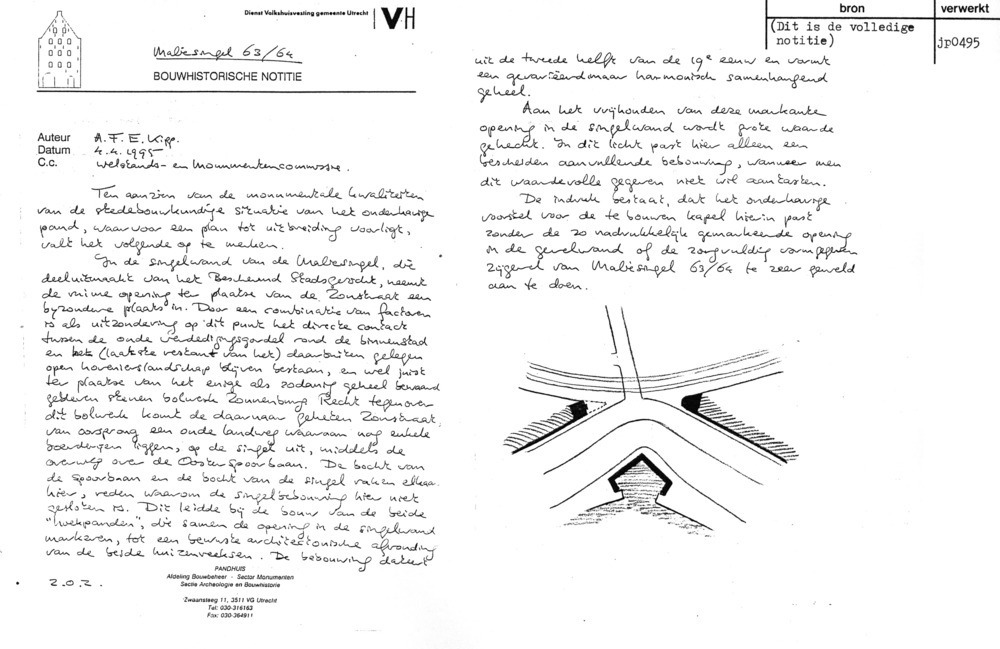 Dienst Volkshuisvesting gemeente Utrecht
VH
Maliesingel 63/64
BOUWHISTORISCHE NOTITIE
Auteur A.F.E. Kipp.
Datum 4.4.1995
C.c. Welstands- en Monumentencommissie.
Ten aanzien van de monumentale kwaliteiten
van de stedebouwkundige situatie van het onderhavige
pand, waarvoor een plan tot uitbreiding voorligt,
valt het volgende op te merken.
In de singelwand van de Maliesingel, die
deeluitmaakt van het Beschermd Stadsgezicht, neemt
de ruime opening ter plaatse van de Zonstraat een
byzondere plaats in. Door een combinatie van factoren
is als uitzondering op dit punt het directe contact
tussen de oude verdedigingsgordel rond de binnenstad
en het (laatste restant van het) daarbuiten gelegen
open hovenierslandschap blijven bestaan, en wel juist
ter plaatse van het enige als zodanig geheel bewaard
gebleven stenen bolwerk Zonnenburg. Recht tegenover
dit bolwerk komt de daarnaar geheten Zonstraat,
van oorsprong een oude landweg waaraan nog enkele
boerderijen liggen, op de singel uit, middels de
overweg over de Oosterspoorbaan. De bocht van
de spoorbaan en de bocht van de singel raken elkaar
hier, reden waarom de singelbebouwing hier niet
gesloten is. Dit leidde bij de bouw van de beide
"hoekpanden", die samen de opening in de singelwand
markeren, tot een bewuste architectonische afronding
van de beide huizenreeksen. De bebouwing dateert
z.o.z.
PANDHUIS
Afdeling Bouwbeheer - Sector Monumenten
Sectie Archeologie en Bouwhistorie
Zwaansteeg 11, 3511 VG Utrecht
Tel: 030-316163
Fax: 030-364911
bron
verwerkt
(Dit is de volledige
notitie)
jp0495
uit de tweede helft van de 19e eeuw en vormt
een gevarieerd maar harmonisch samenhangend
geheel.
Aan het vrijhouden van deze markante
opening in de singelwand wordt grote waarde
gehecht. In dit licht past hier alleen een
bescheiden aanvullende bebouwing, wanneer men
dit waardevolle gegeven niet wil aantasten.
De indruk bestaat, dat het onderhavige
voorstel voor de te bouwen kapel hierin past
zonder de zo nadrukkelijk gemarkeerde opening
in de gevelwand of de zorgvuldig vormgegeven
zijgevel van Maliesingel 63/64 te zeer geweld
aan te doen.